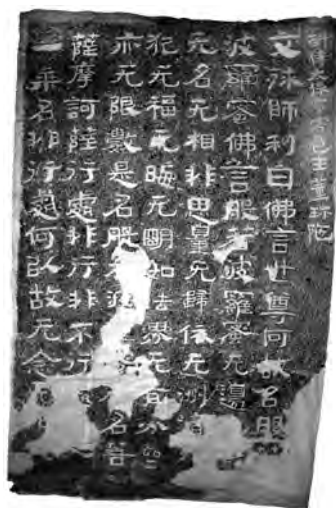 斛律太保家客邑主董珍陀
文殊師利白佛言世尊何故名般
波羅蜜佛言般若波羅蜜无邊
无名无相非思量无歸依无洲渚
犯无福无晦无明如法界无有分
亦无限數是名般若波 名菩
薩摩訶薩行處非行非不行
一乘名非行處何以故无念